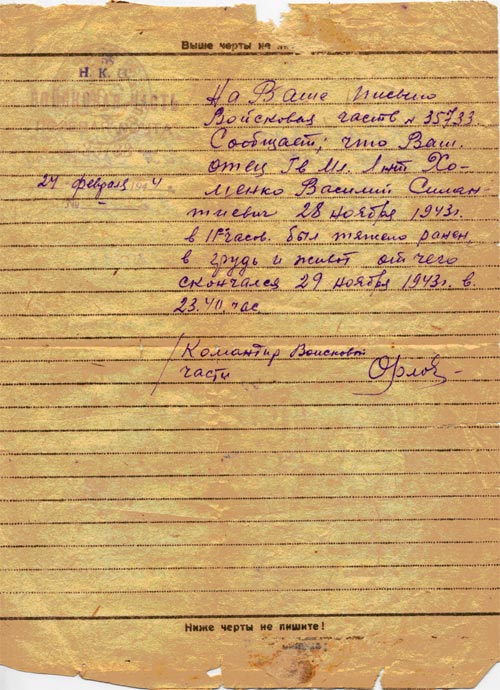 Выше черты не
Н. К. О.
войсковая часть
полевая почта
24 февраля 1944 г.
№
На Ваше письмо
Войсковая часть № 35733
Сообщает, что Ваш
отец Гв Мл. Лнт Хо-
менко Василий Силан-
тиевич 28 ноября 1943г.
в часов. был тяжело ранен
в грудь и живот от чего
скончался 29 ноября 1943г. в.
23.40 час
Комантир Воисковой
части Орлов
Ниже черты не пишите!